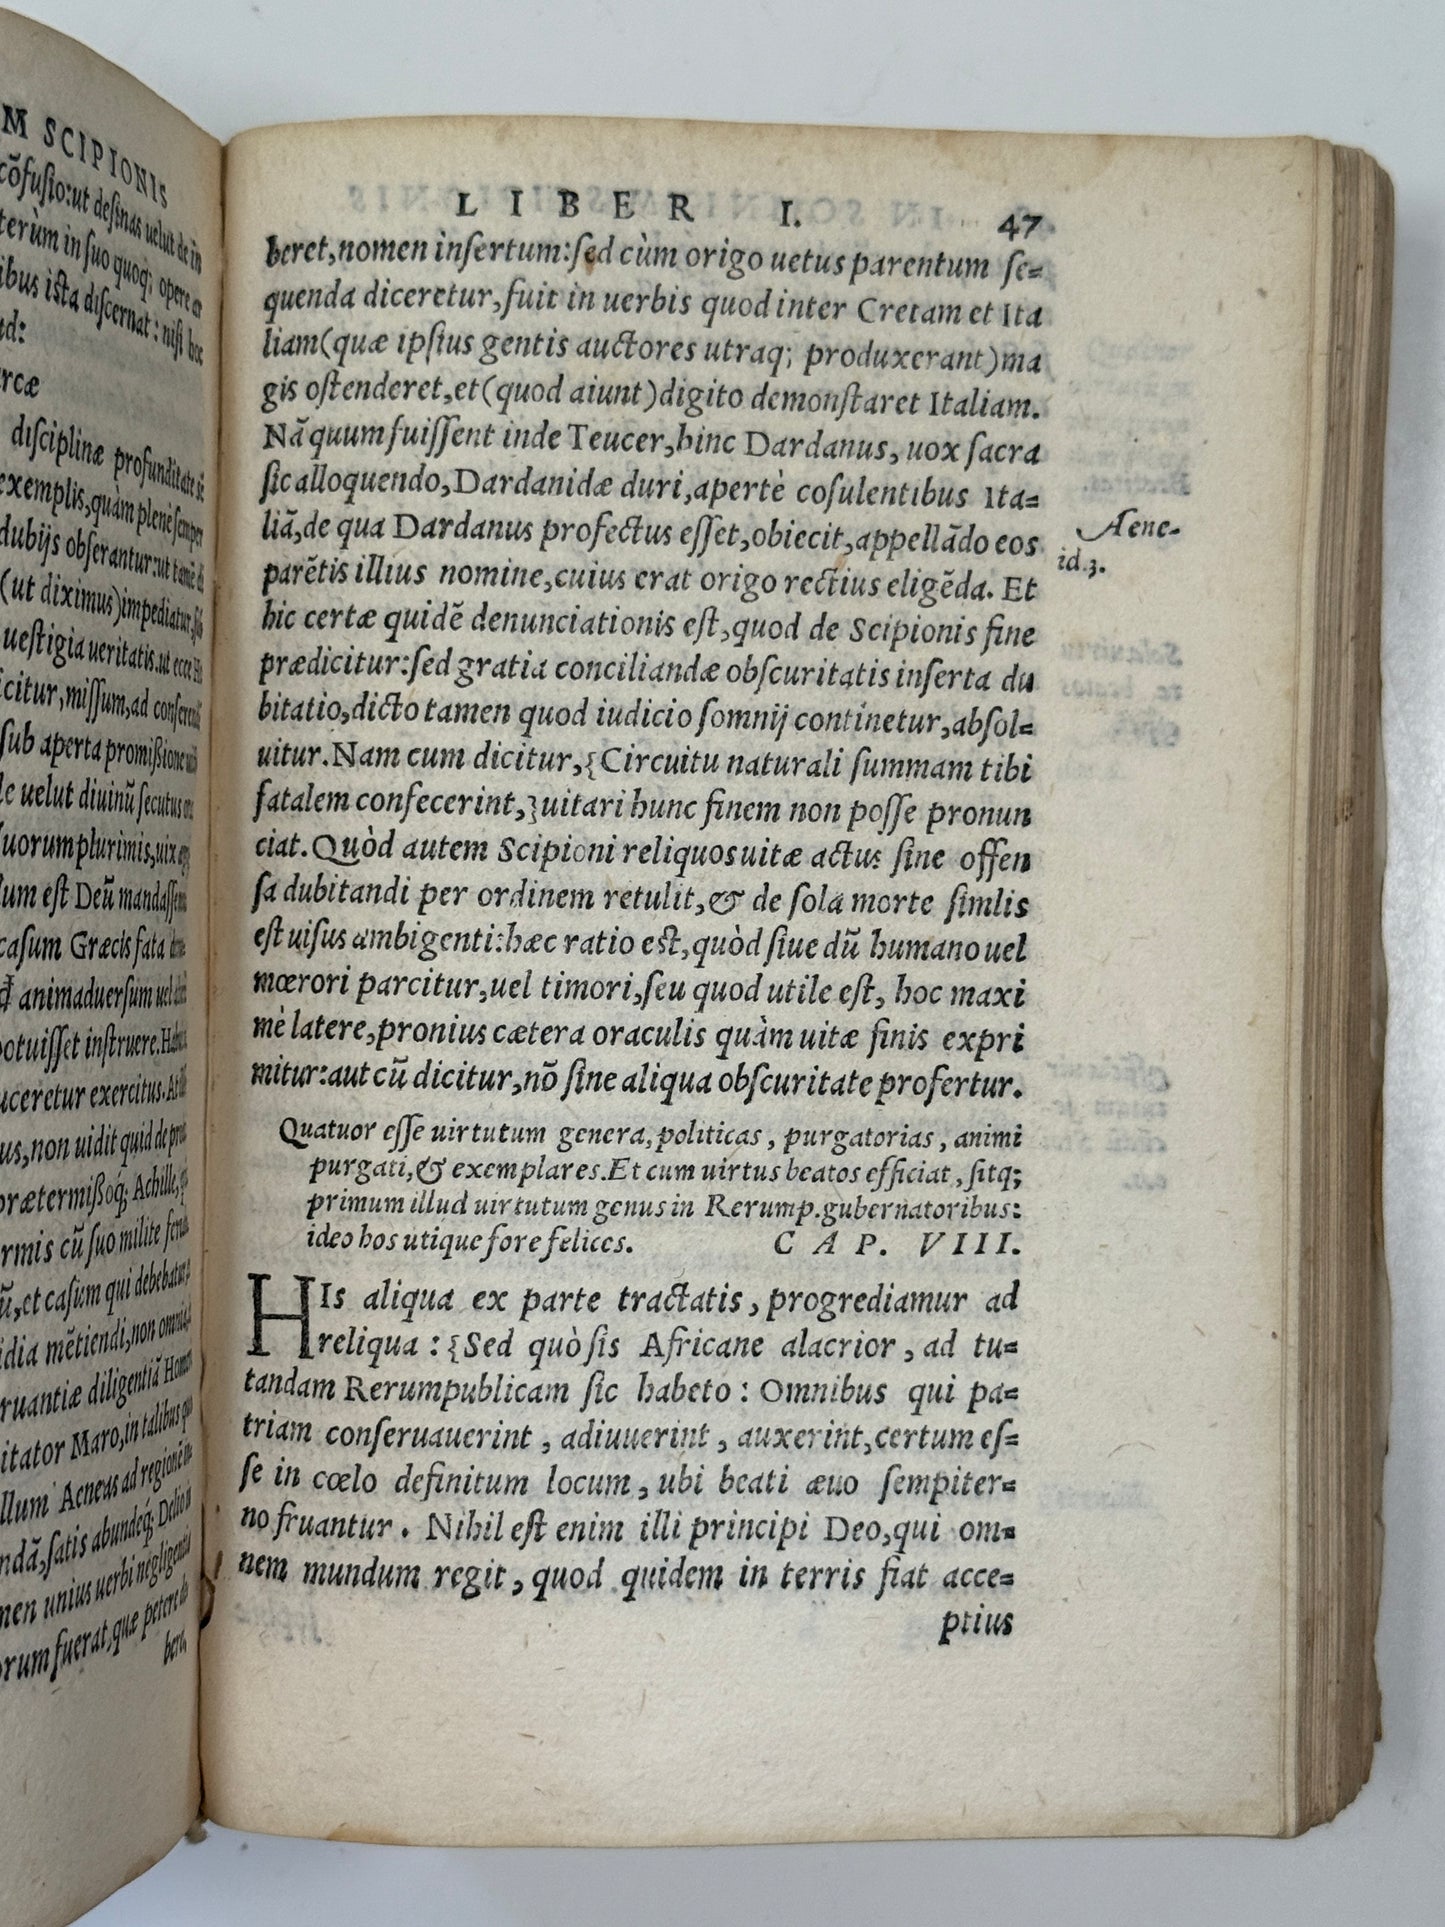 M SCIPIONIS
cõfusio:ut desinas uelut de in
terùm in suo quoq; opere
ibus ista discernat: nisi hoc
rcæ
disciplinæ profunditate
exemplis, quàm plenè semper
dubijs obserantur:ut tamẽ
(ut diximus)impediatur,
uestigia ueritatis.ut ecce
icitur, missum, ad
sub aperta promissione
uelut diuinũ secutus
uorum plurimis, uix
lum est Deũ
casum Græcis fata
animaduersum uel
potuisset instruere.
uceretur exercitus.
us, non uidit quid
prætermissoq; Achille,
rmis cũ suo milite
ũ, et casum qui debebatur
idia mẽtiendi, non
ruantiæ diligentiã
itator Maro, in talibus
llum Aeneas ad regionẽ
ndã, satis abundeq; Delio
men unius uerbi negligentia
orum fuerat, quæ petere
beret,
LIBER I. 47
beret, nomen insertum: sed cùm origo uetus parentum se=
quenda diceretur, fuit in uerbis quod inter Cretam et Ita
liam(quæ ipsius gentis auctores utraq; produxerant)ma
gis ostenderet, et(quod aiunt)digito demonstaret Italiam.
Nã quum fuissent inde Teucer, hinc Dardanus, uox sacra
sic alloquendo, Dardanidæ duri, apertè cosulentibus Ita=
liã, de qua Dardanus profectus esset, obiecit, appellãdo eos
parẽtis illius nomine, cuius erat origo rectius eligẽda. Et
hic certæ quidẽ denunciationis est, quod de Scipionis fine
prædicitur: sed gratia conciliandæ obscuritatis inserta du
bitatio, dicto tamen quod iudicio somnij continetur, absol=
uitur. Nam cum dicitur, {Circuitu naturali summam tibi
fatalem confecerint,} uitari hunc finem non posse pronun
ciat. Quòd autem Scipioni reliquos uitæ actus sine offen
sa dubitandi per ordinem retulit, & de sola morte simlis
est uisus ambigenti: hæc ratio est, quòd siue dũ humano uel
mœrori parcitur, uel timori, seu quod utile est, hoc maxi
mè latere, pronius cætera oraculis quàm uitæ finis expri
mitur: aut cũ dicitur, nõ sine aliqua obscuritate profertur.
Aene-
id.3.
Quatuor esse uirtutum genera, politicas, purgatorias, animi
purgati, & exemplares. Et cum uirtus beatos efficiat, sitq;
primum illud uirtutum genus in Rerump. gubernatoribus:
ideo hos utique fore felices. CAP. VIII.
HIs aliqua ex parte tractatis, progrediamur ad
reliqua: {Sed quò sis Africane alacrior, ad tu=
tandam Rerumpublicam sic habeto: Omnibus qui pa=
triam conseruauerint, adiuuerint, auxerint, certum es=
se in cœlo definitum locum, ubi beati æuo sempiter=
no fruantur. Nihil est enim illi principi Deo, qui om=
nem mundum regit, quod quidem in terris fiat acce=
ptius